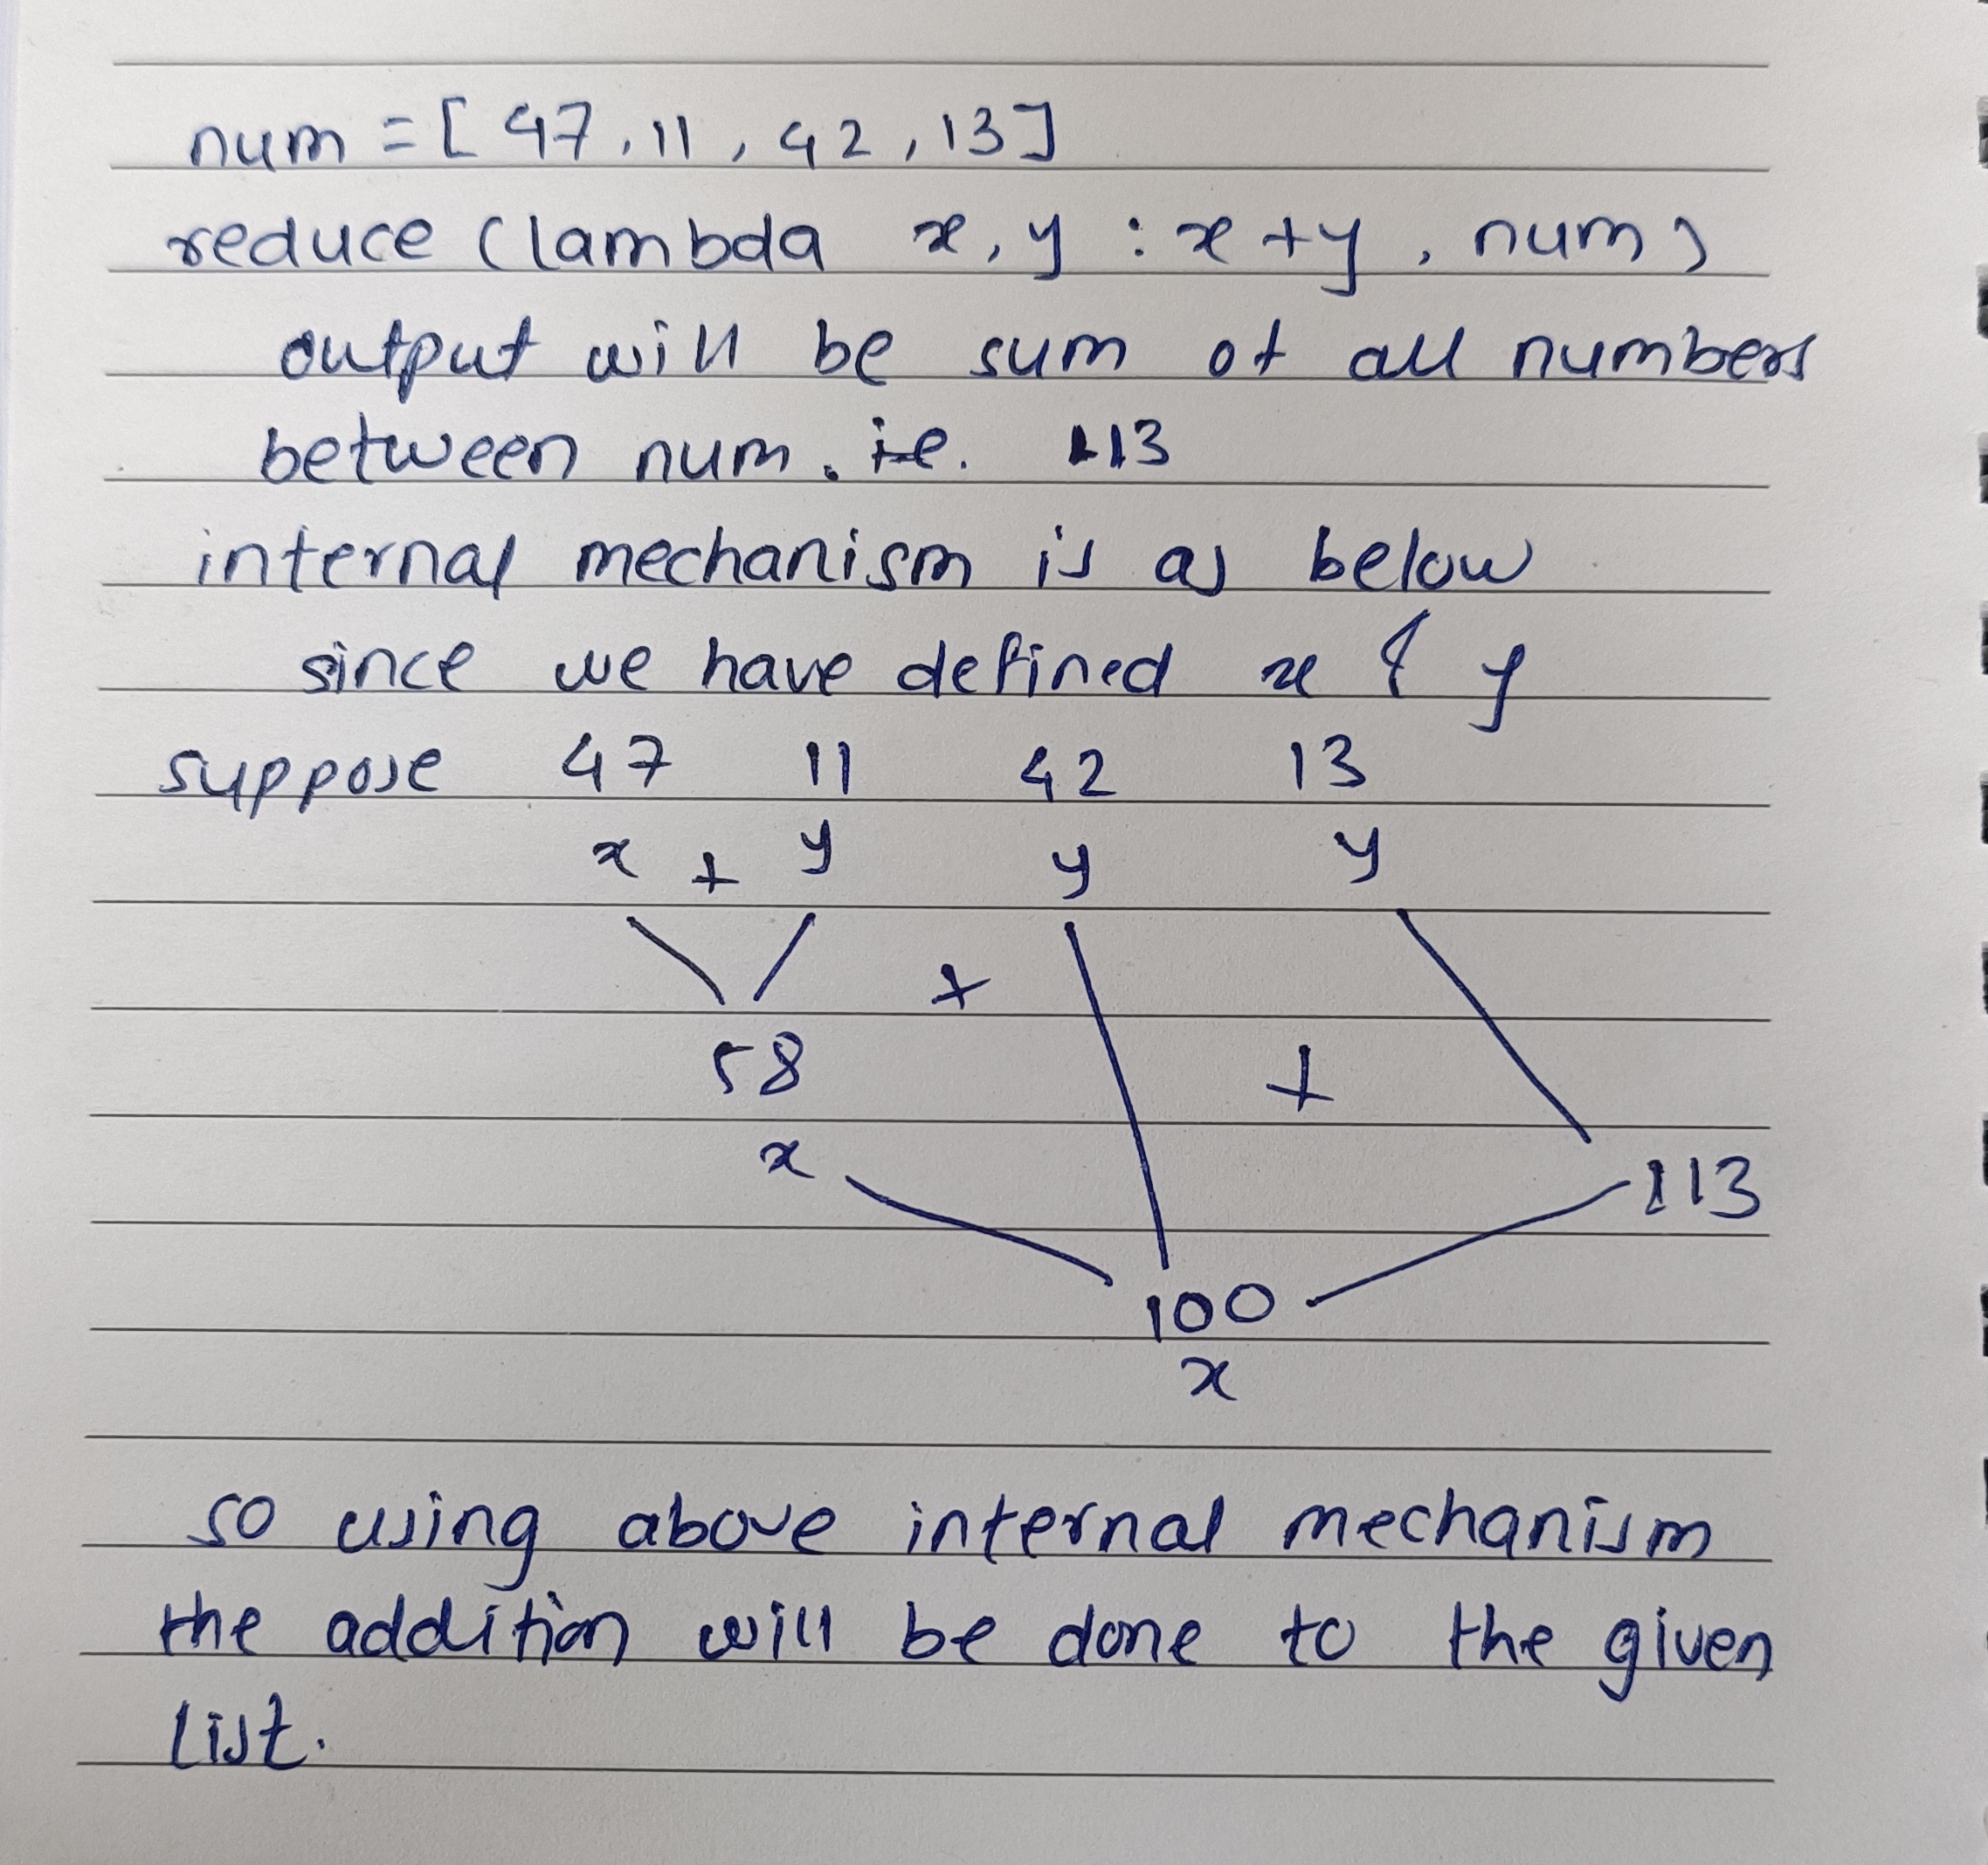 num = [ 47, 11, 42, 13 ]
reduce (lambda x, y : x + y, num)
output will be sum of all numbers
between num. i.e. 113
internal mechanism is as below
since we have defined x & y
suppose 47 11 42 13
x + y y y
+
58 +
x 113
100
x
so using above internal mechanism
the addition will be done to the given
list.